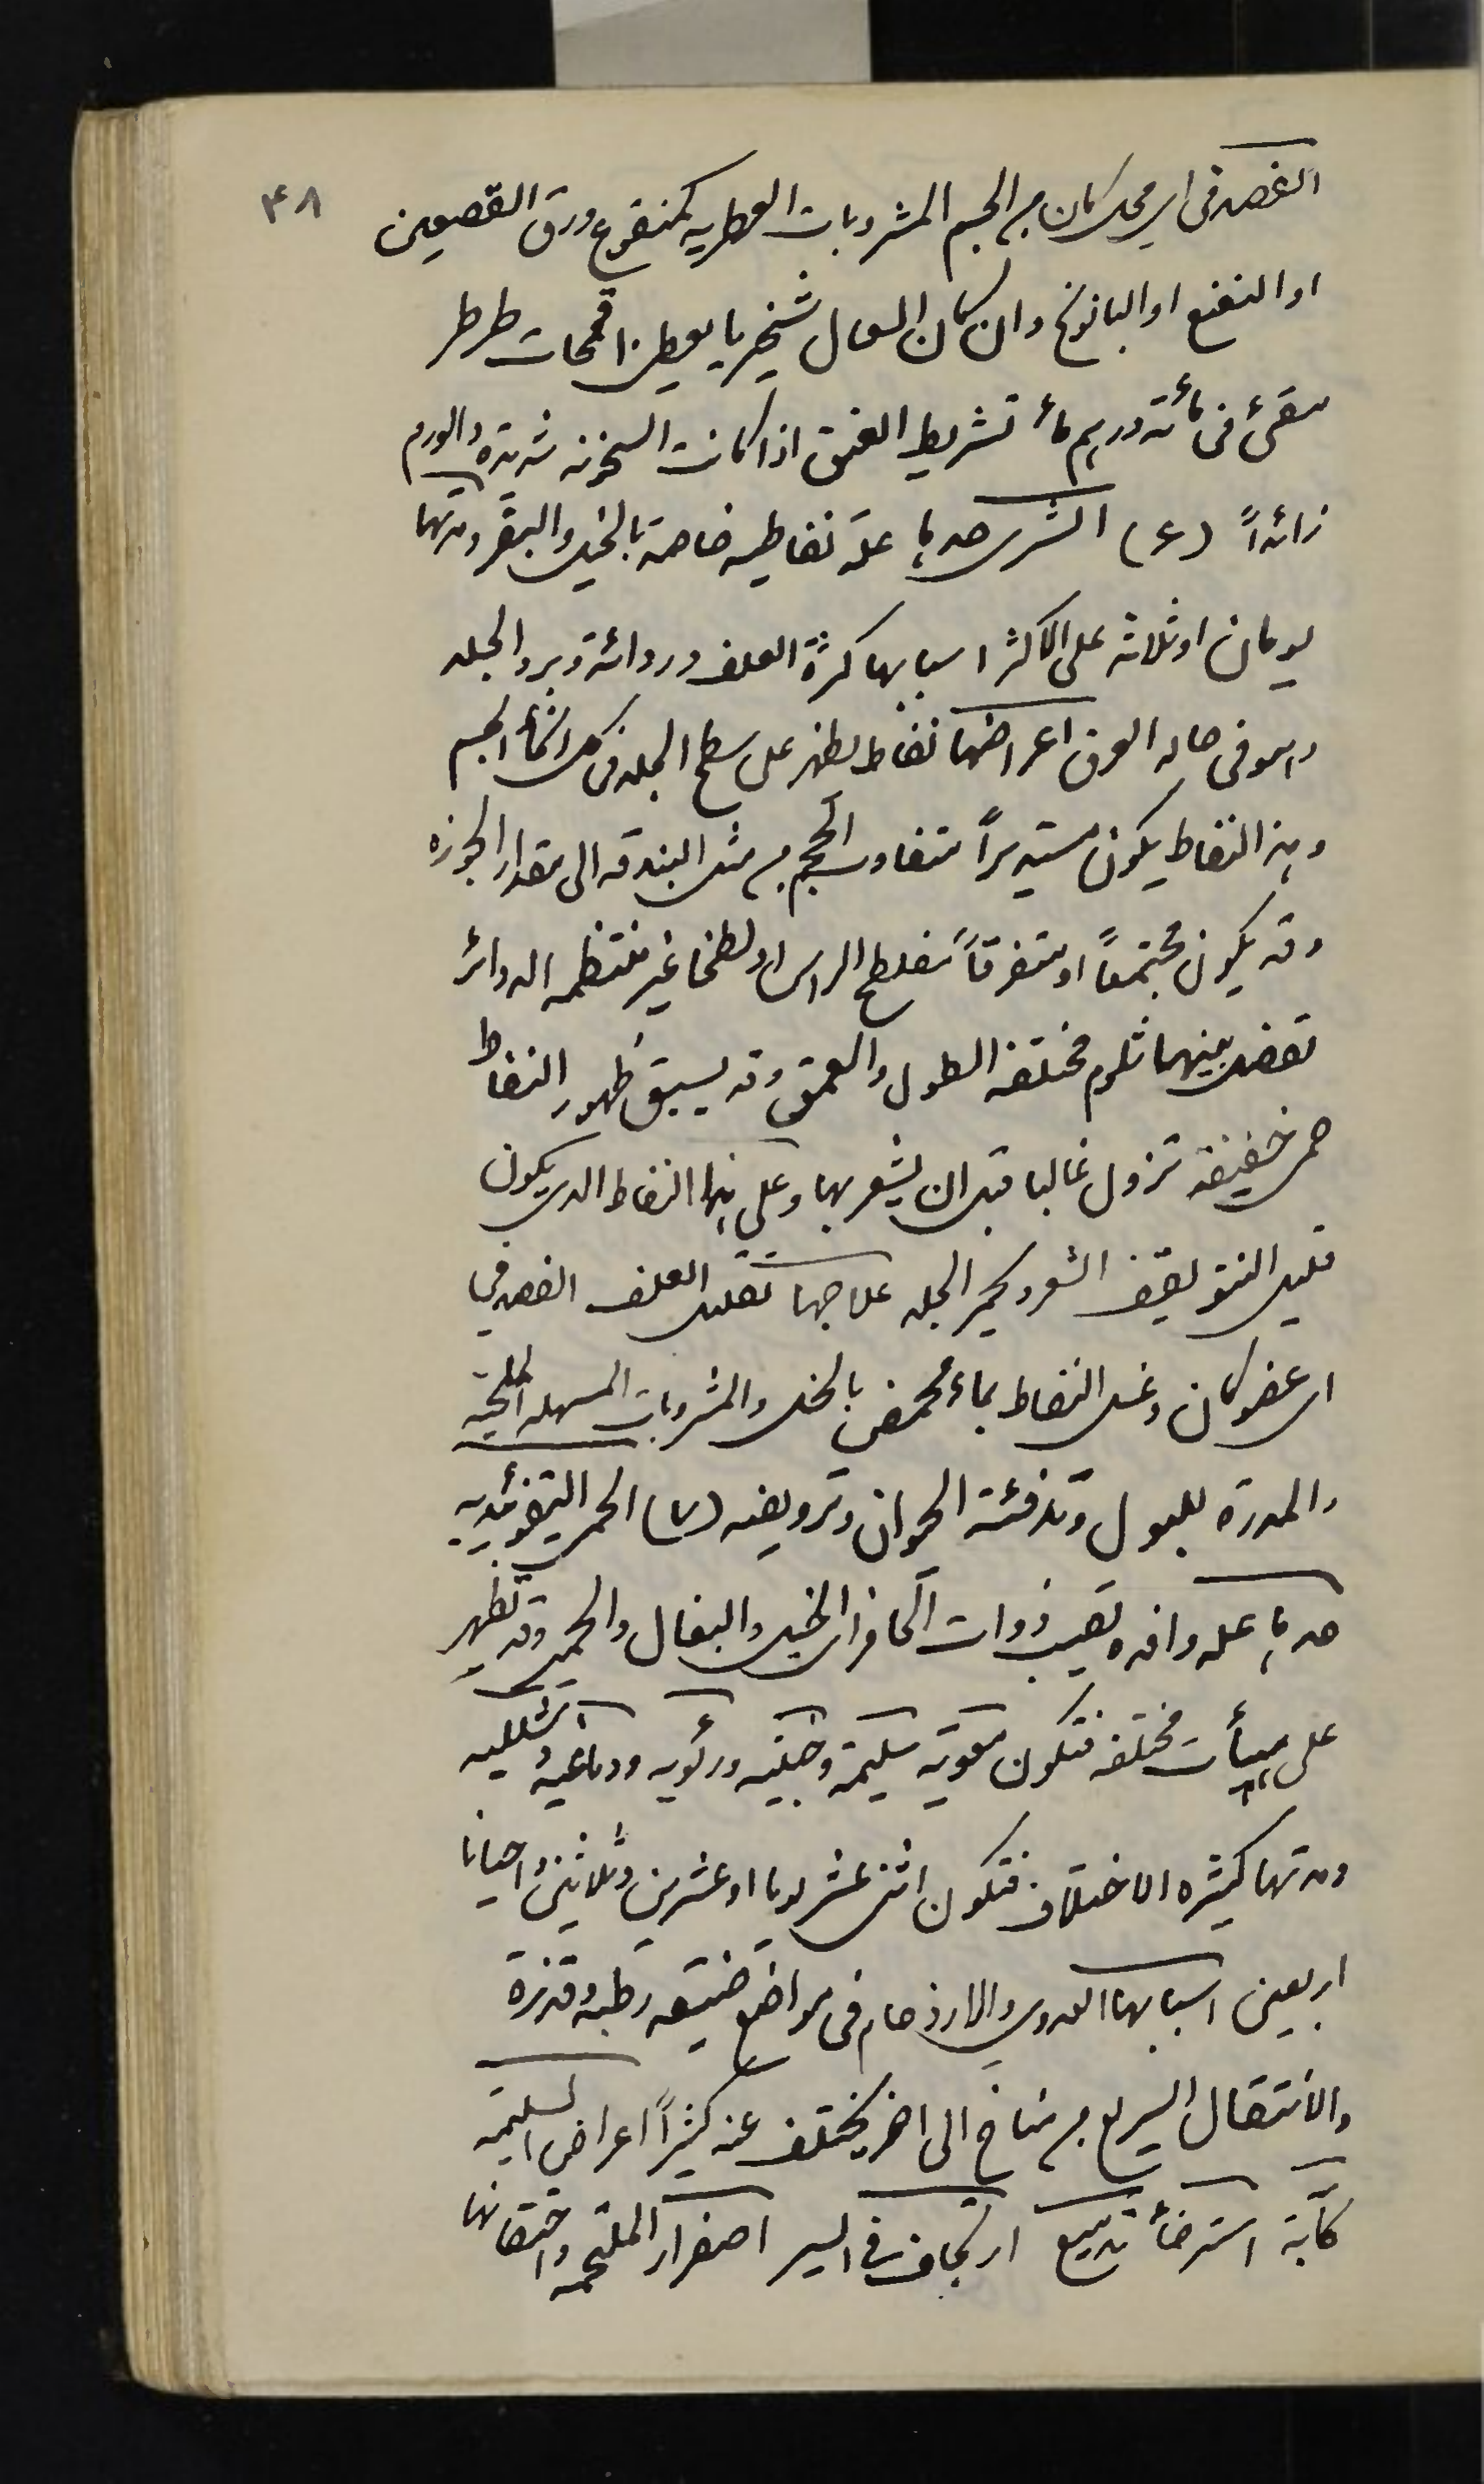 ۴۸
الفصد فى اي محل كان من الجسم المشروبات العطريه كمنقوع ورق القصعين
او النعنع او البابونج وان كان السعال شخيريا يعطى ١٠ قمحات طرطر
مقئ فى مأئة درهم مأ تشريط العنق اذا كانت السخونه شديدة والورم
زائداً (٦) الشرى حدها علة نفاطيه خاصة بالخيل والبقر ومدتها
يومان او ثلاثه على الاكثر اسبابها كثرة العلف وردائة وبرد الجلد
وهو فى حاله العرق اعراضها نفاط يظهر على سطح الجلد فى كل انحأ الجسم
وهذا النفاط يكون مستديراً متفاوت الحجم من مثل البندقه الى مقدار الجوزه
وقد يكون مجتمعاً او متفرقاً مفلطح الراس او لطخا غير منتظمه الدوائر
تفصل بينهما ثلوم مختلفه الطول والعمق وقد يسبق ظهور النفاط
حمى خفيفه تزول غالبا قبل ان يشعر بها وعلى هذا النفاط الدى يكون
قليل النتو يقف الشعر ويحمر الجلد علاجها تقليل العلف الفصد فى
اى عضو كان وغسل النفاط بماء محمض بالخل والمشروبات المسهله الملحيه
والمدرة للبول وتدفئة الحيوان وترويضه (٧) الحمى التيفوئيديه
حدها عله وافده تصيب ذوات الحافر اى الخيل والبغال والحمير وقد تظهر
على هيأت مختلفه فتكون معوية سليمة وخبيثه ورئويه ودماغيه وشلليه
ومدتها كثيره الاختلاف فتكون اثنى عشر يوما او عشرين وثلاثين واحيانا
اربعين اسبابها العدوى والازدحام فى مواضع ضيقه رطبه وقذرة
والانتقال السريع من مناخ الى اخر يختلف عنه كثيراً اعراض السليمه
كآبة استرخأ تدميع ارتجاف فى السير اصفرار الملتحمه واحتقانها